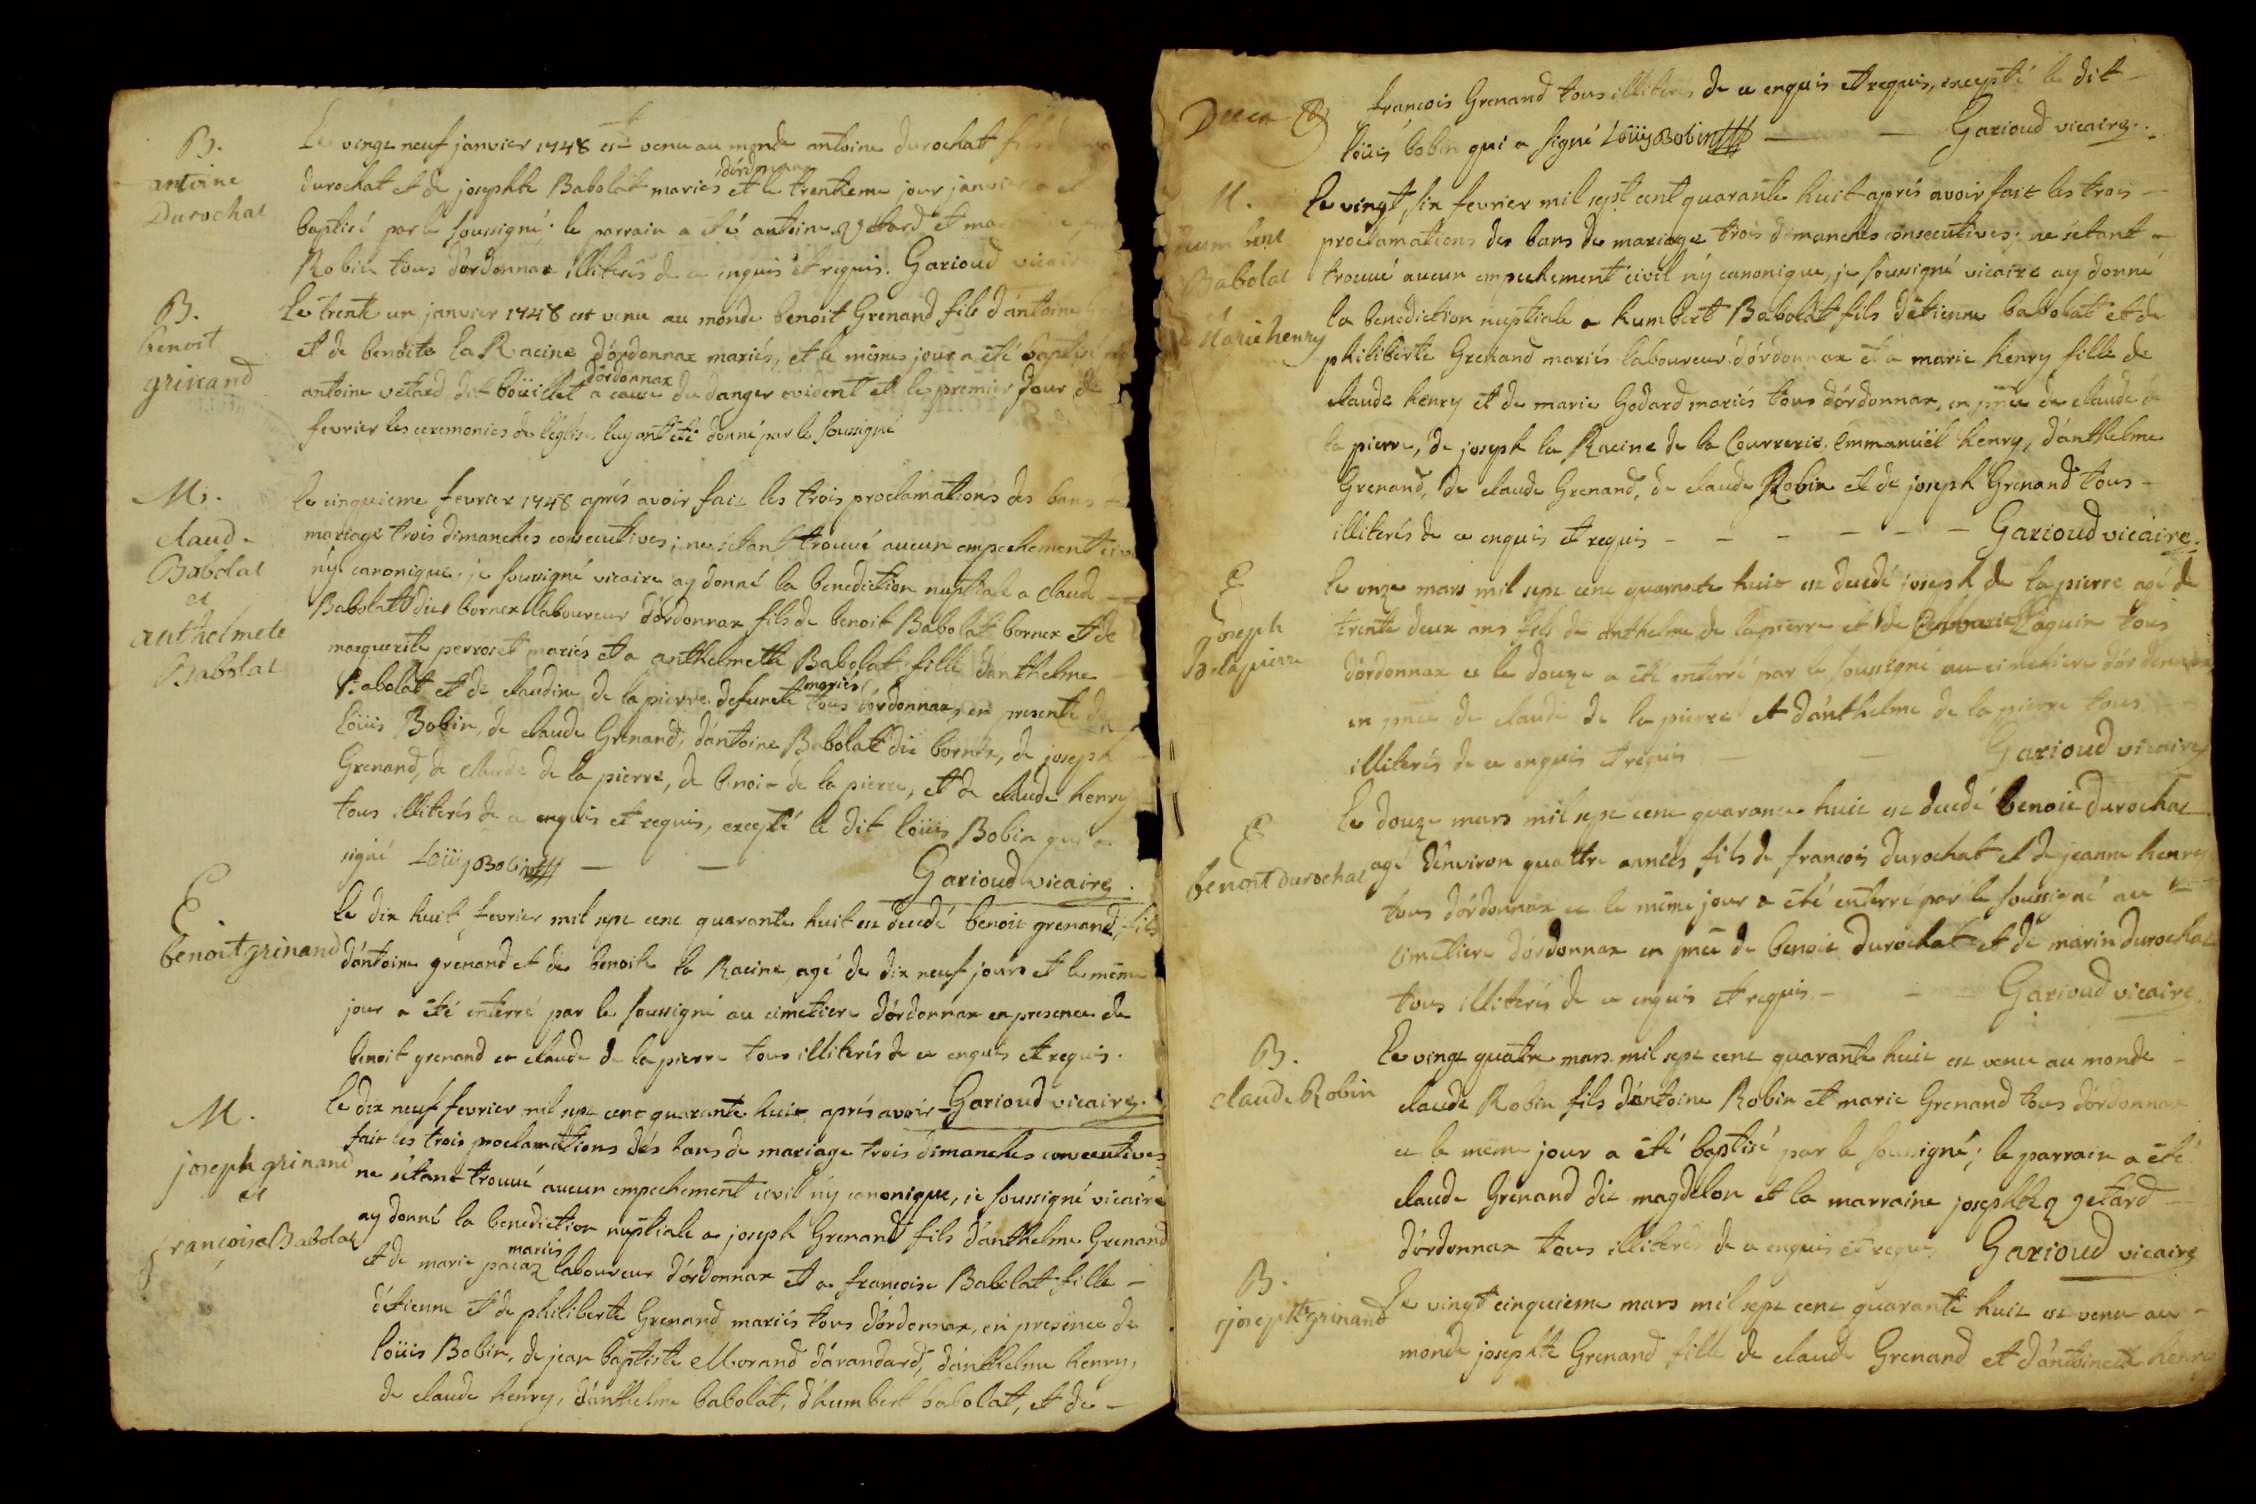 B.
antoine
Durochat
Le vingt neuf janvier 1748 est venu au monde antoine durochat fils
dórdonnax
durochat et de josephte Babolat mariés et le trentieme jour janvier a
baptisé par le soussigné; le parrain a été antoine Vetard et
Robin tous dórdonnax illiterés de ce enquis et requis. Garioud vicair
B.
benoit
grinand
Le trente un janvier 1748 est venu au monde benoit Grenand fils dántoine
et de benoite la Racine dórdonnax mariés, et le même jour a été baptisé
dórdonnax
antoine vetard dit boüillet a cause du danger evident et le premier jour de
fevrier les ceremonies de léglise luy ont été donné par le soussigné
M.
claude
Babolat
et
anthelmete
Babolat
le cinquieme fevrier 1748 aprés avoir fait les trois proclamations des bans
mariage trois dimanches consecutives; ne sétant trouvé aucun empechement
ny canonique, je soussigné vicaire ay donné la benediction nuptiale a claude
Babolat dit bornex laboureur dórdonnax fils de benoit Babolat bornex et de
marguerite perroset mariés et a anthelmette Babolat fille dánthelme
mariés
Babolat et de claudine de la pierre defunete tous dórdonnax, en presente de
loüis Bobin, de claude Grenand, dántoine Babolat dit bornex, de joseph
Grenand, de claude de la pierre, de benoit de la pierre, et de claude henry
tous illiterés de ce enquis et requis, excepté le dit loüis Bobin qui a
signé Loüijs Bobin — — Garioud vicaire.
E.
benoit grinand
le dix huit fevrier mil sept cent quarante huit est decedé benoit grenand, fils
dántoine grenand et de benoite la Racine, agé de dix neuf jours et le même
jour a été enterré par le soussigné au cimetiere dórdonnax en presence de
benoit grenand et claude de la pierre tous illiterés de ce enquis et requis.
M.
joseph grinand
et
françoise Babolat
le dix neuf fevrier mil sept cent quarante huit, aprés avoir Garioud vicaire.
fait les trois proclamations dés bans de mariage trois dimanches consecutives
ne sétant trouvé aucun empechement civil ny canonique, je soussigné vicaire
ay donné la benediction nuptiale a joseph Grenand fils dánthelme Grenand
mariés
et de marie laboureur dórdonnax et a francoise Babolat fille –
détienne et de philiberte Grenand mariés tous dórdonnax, en presence de
loüis Bobin, de jean baptiste Morand dárandard, dánthelme henry,
de claude henry, dánthelme babolat, dhumbert babolat, et de –
francois Grenand tous illiterés de ce enquis et requis, excepté le dit –
loüis bobin qui a signé Loüijs Bobin — — Garioud vicaire.
M.
Babolat
et
Marie henry
Le vingt six fevrier mil sept cent quarante huit aprés avoir fait les trois –
proclamations des bans de mariage trois dimanches consecutives; ne sétant –
trouvé aucun empechement civil ny canonique, je soussigné vicaire ay donné
la benediction nuptiale a humbert Babolat fils détienne babolat et de
philiberte Grenand mariés laboureur dórdonnax et a marie henry fille de
claude henry et de marie Godard mariés tous dórdonnax, en pñce de claude de
la pierre, de joseph la Racine de la Courrerie, Emmanuël henry, dánthelme
Grenand, de claude Grenand, de claude Robin et de joseph Grenand tous –
illiterés de ce enquis et requis – – – – – – Garioud vicaire.
E
joseph
Delapierre
le onze mars mil sept cent quarante huit est decedé joseph de la pierre agé de
trente deux ans fils de anthelme de la pierre et de tous
dórdonnax et le douze a été enterré par le soussigné au cimetiere dórdonnax
en pñce de claude de la pierre et dánthelme de la pierre tous
illiterés de ce enquis et requis — — Garioud vicaire
E
benoit durochat
Le douze mars mil sept cent quarante huit est decedé benoit durochat
agé dénviron quattre années fils de francois durochat et de jeanne henry
tous dórdonnax et le même jour a été enterré par le soussigné au
cimetiere dórdonnax en pñce de benoit durochat et de marin durochat
tous illiterés de ce enquis et requis – – – Garioud vicaire
B.
claude Robin
Le vingt quatre mars mil sept cent quarante huit est venu au monde –
claude Robin fils dántoine Robin et marie Grenand tous dórdonnax
et le même jour a été baptisé par le soussigné; le parrain a été
claude Grenand dit magdelon et la marraine josephte getard —
dórdonnax tous illiterés de ce enquis et requis Garioud vicaire
B.
josephte grinand
Le vingt cinquieme mars mil sept cent quarante huit est venu au –
monde josephte Grenand fille de claude Grenand et dántoinette henry